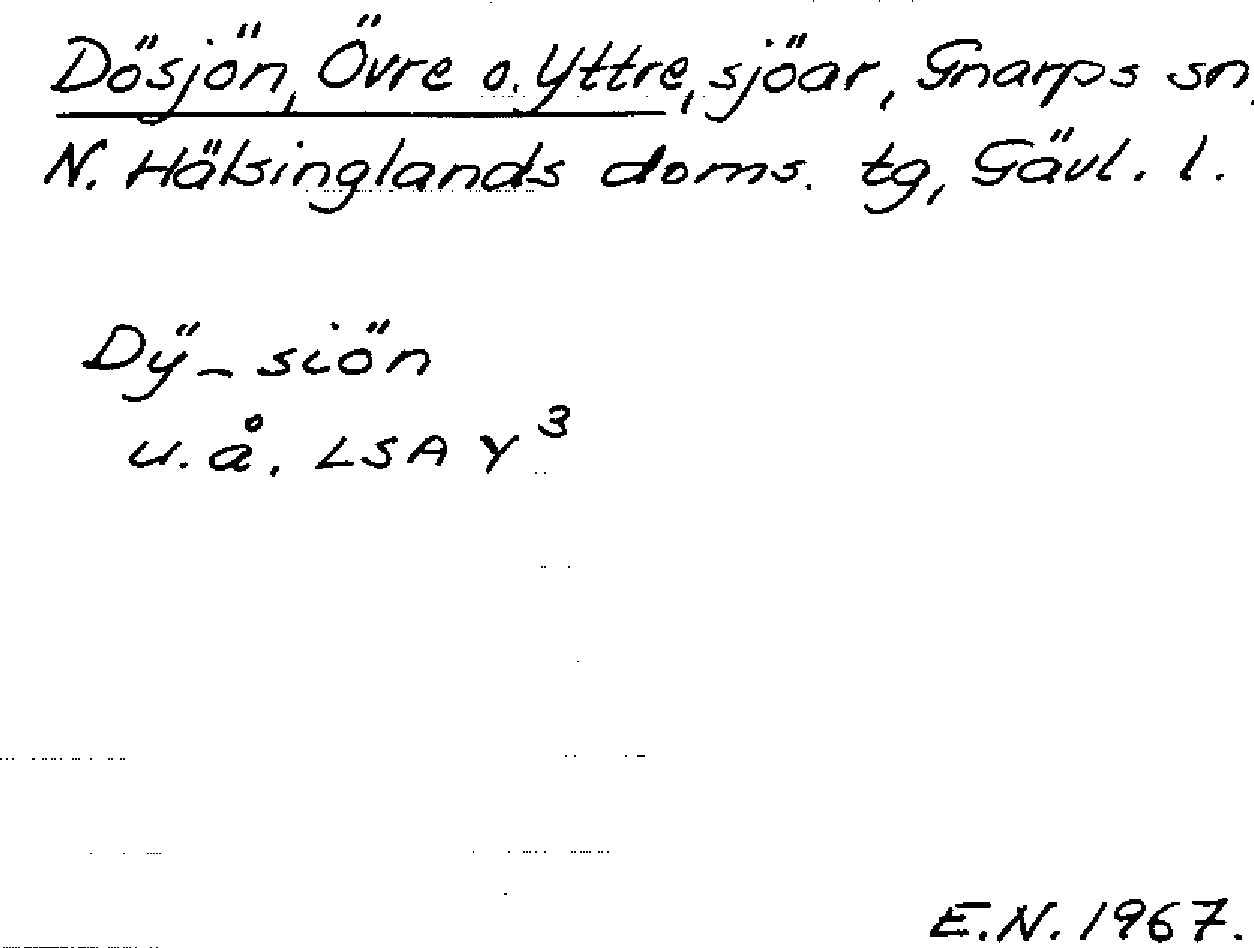 Dösjön, Övre o. Yttre, sjöar, Gnarps sn.
N. Hälsinglands doms. tg, Gävl. l.
Dÿ-siön
u.å. LSA Y³
E.N. 1967.